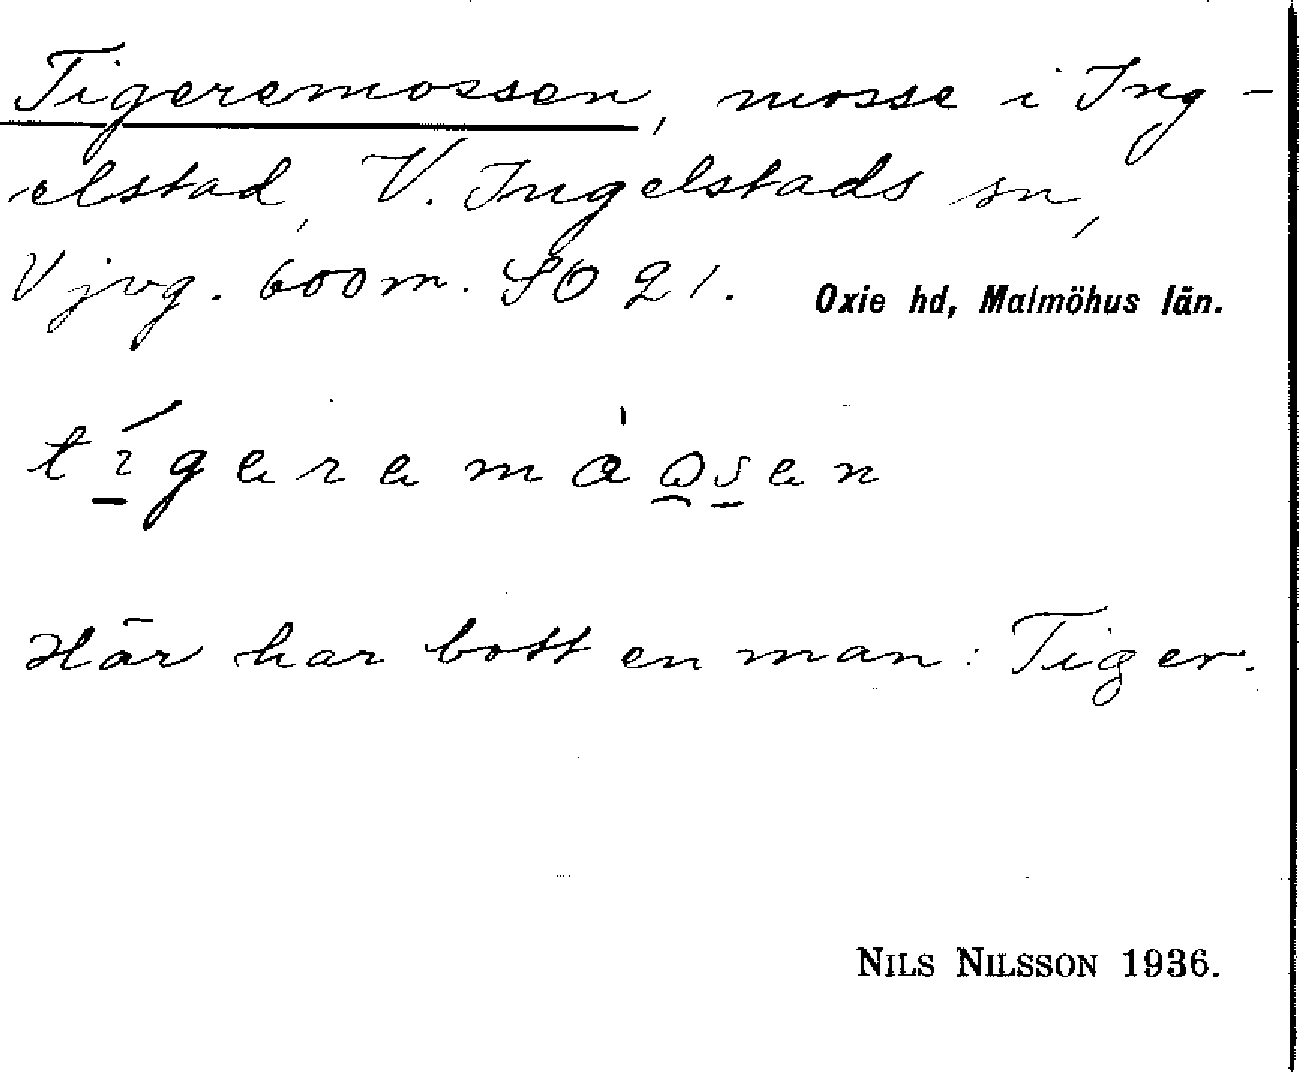 Tigeremossen, mosse i Ing-
elstad, V. Ingelstads sn,
V jvg. 600 m. SO 21. Oxie hd, Malmöhus län.
Här har bott en man: Tiger.
NILS NILSSON 1936.